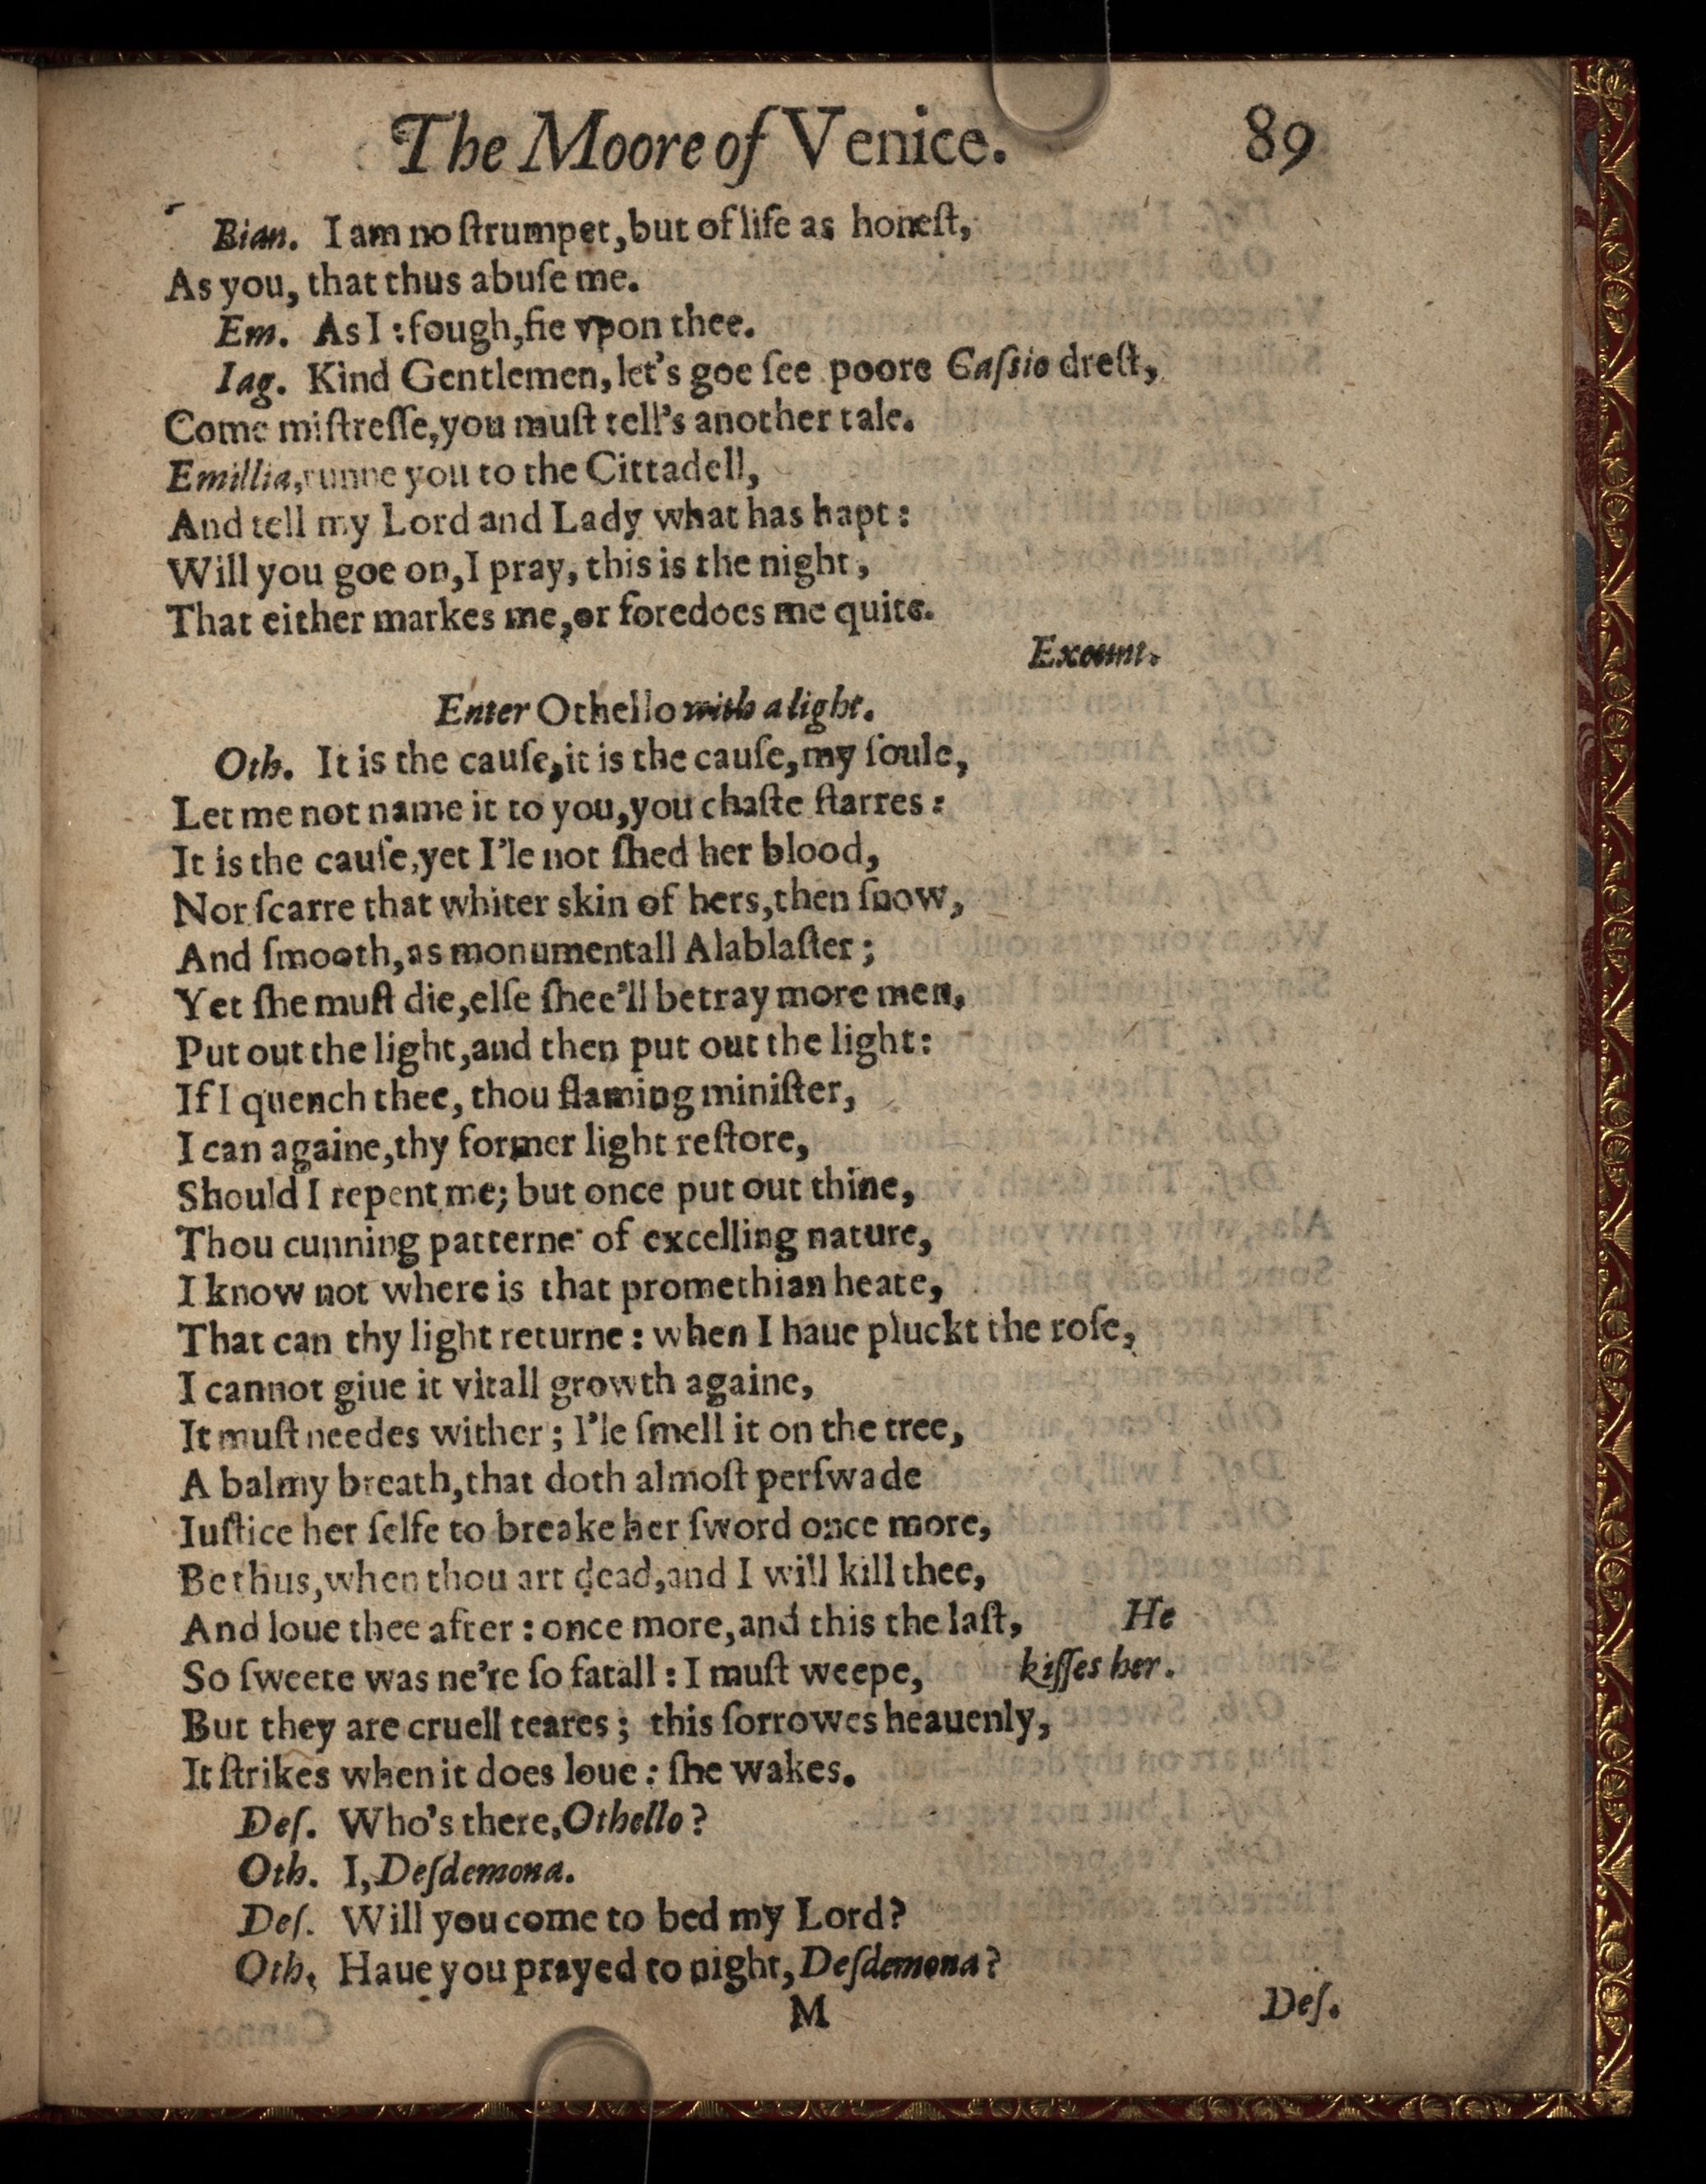 The Moore of Venice. 89
Bian. I am no ſtrumpet, but of life as honeſt,
As you, that thus abuſe me.
Em. As I : fough, fie vpon thee.
Iag. Kind Gentlemen, let's goe ſee poore Caſsio dreſt,
Come miſtreſſe, you muſt tell's another tale.
Emillia, runne you to the Cittadell,
And tell my Lord and Lady what has hapt :
Will you goe on, I pray, this is the night,
That either markes me, or foredoes me quite.
Exeunt.
Enter Othello with a light.
Oth. It is the cauſe, it is the cauſe, my ſoule,
Let me not name it to you, you chaſte ſtarres :
It is the cauſe, yet I'le not ſhed her blood,
Nor ſcarre that whiter skin of hers, then ſnow,
And ſmooth, as monumentall Alablaſter ;
Yet ſhe muſt die, elſe ſhee'll betray more men,
Put out the light, and then put out the light :
If I quench thee, thou flaming miniſter,
I can againe, thy former light reſtore,
Should I repent me; but once put out thine,
Thou cunning patterne of excelling nature,
I know not where is that promethian heate,
That can thy light returne : when I haue pluckt the roſe,
I cannot giue it vitall growth againe,
It muſt needes wither ; I'le ſmell it on the tree,
A balmy breath, that doth almoſt perſwade
Iuſtice her ſelfe to breake her ſword once more,
Be thus, when thou art dead, and I will kill thee,
And loue thee after : once more, and this the laſt, He
So ſweete was ne're ſo fatall : I muſt weepe, kiſſes her.
But they are cruell teares ; this ſorrowes heauenly,
It ſtrikes when it does loue : ſhe wakes.
Deſ. Who's there, Othello ?
Oth. I, Deſdemona.
Deſ. Will you come to bed my Lord ?
Oth, Haue you prayed to night, Deſdemona ?
M Deſ.